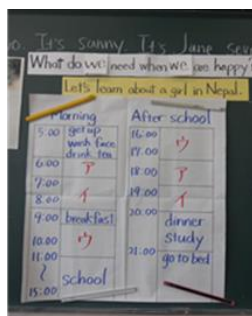 It's sunny It's June
What do we need when we are happy?
Let's learn about a girl in Nepal.
Morning
5:00 get up
wash face
drink tea
6:00 ア
7:00
8:00 イ
9:00 breakfast
10:00 ウ
11:00
15:00 school
After school
16:00
17:00 ウ
18:00 ア
19:00 イ
20:00
dinner
study
21:00 go to bed